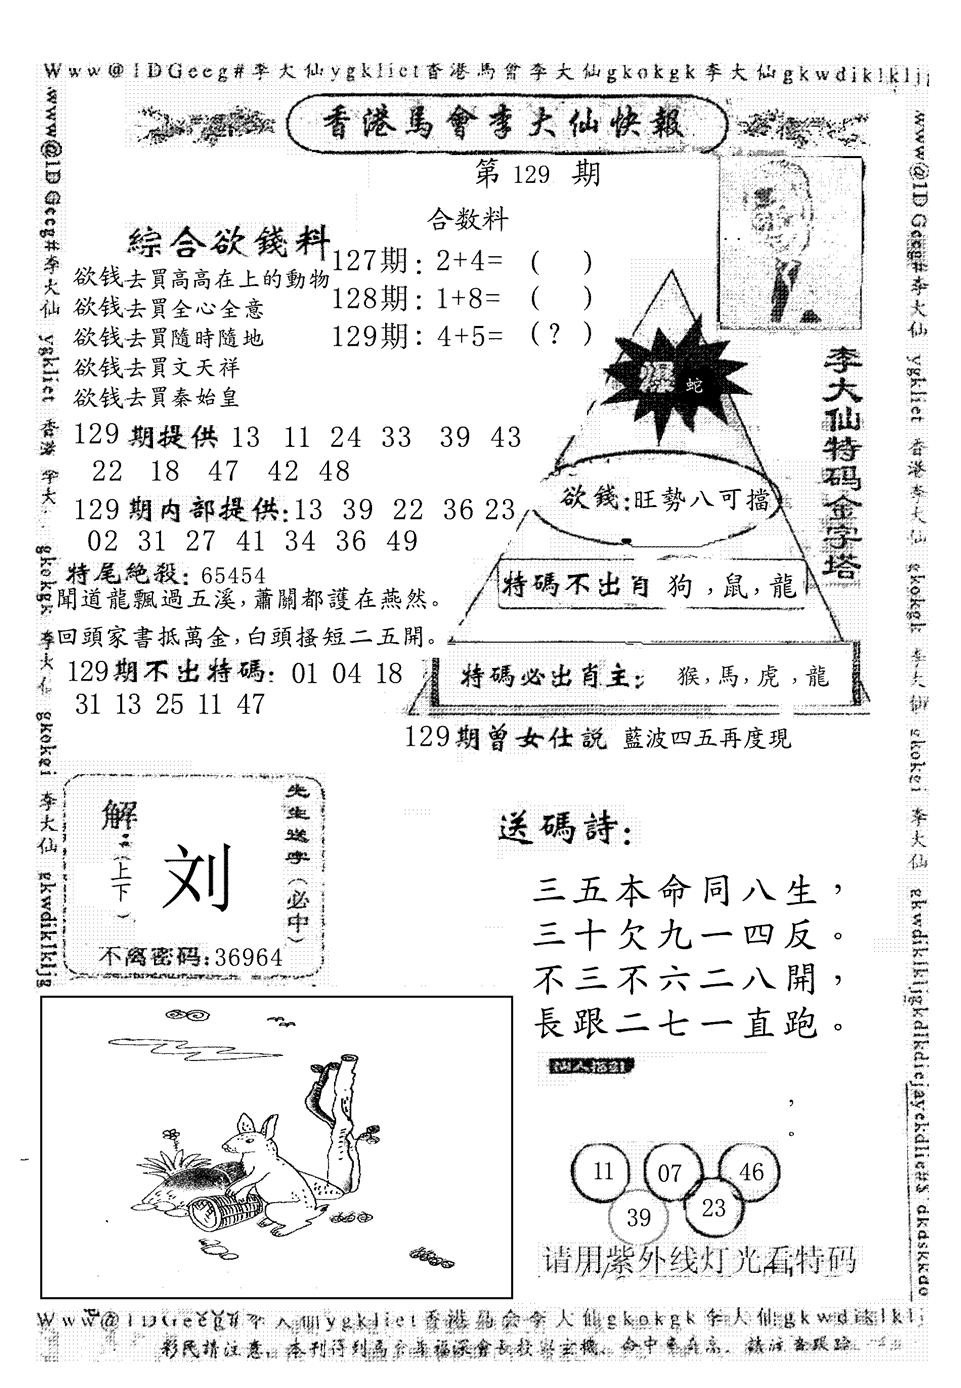 Www@1DGeeg#李大仙ygkliet香港馬會李大仙gkokgk李大仙gkwdiklkljg
香港馬會李大仙快報
第 129 期
合数料
127期: 2+4= ( )
128期: 1+8= ( )
129期: 4+5= (?)
綜合欲錢料
欲钱去買高高在上的動物
欲钱去買全心全意
欲钱去買隨時隨地
欲钱去買文天祥
欲钱去買秦始皇
129期提供 13 11 24 33 39 43
22 18 47 42 48
129期内部提供:13 39 22 36 23
02 31 27 41 34 36 49
特尾絶殺: 65454
聞道龍飄過五溪,蕭關都護在燕然。
回頭家書抵萬金,白頭搔短二五開。
129期不出特碼: 01 04 18
31 13 25 11 47
李大仙特码金字塔
爆 蛇
欲錢:旺勢八可擋
特碼不出肖 狗,鼠,龍
特碼必出肖主: 猴,馬,虎,龍
129期曾女仕説 藍波四五再度現
先生送字(必中)
解:(上下)
刘
不离密码:36964
送碼詩:
三五本命同八生,
三十欠九一四反。
不三不六二八開,
長跟二七一直跑。
,
。
11 07 46
39 23
请用紫外线灯光看特码
www@1DGeeg#李大仙 ygkliet 香港 李大 gkokgk 李大仙 gkokei 李大仙 gkwdiklkljg